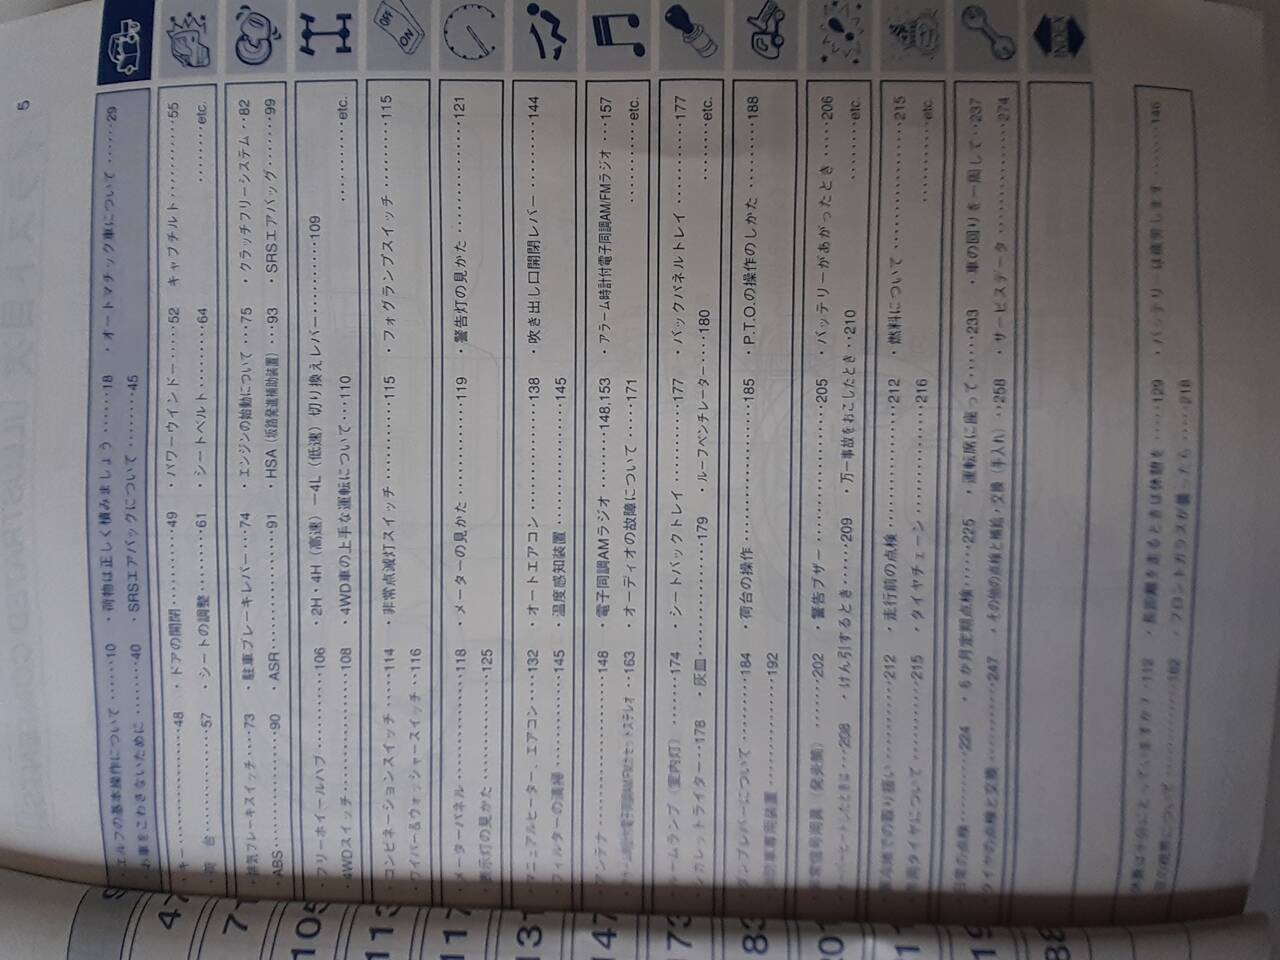 5
・エルフの基本操作について‥‥‥10 ・荷物は正しく積みましょう‥‥‥18 ・オートマチック車について‥‥‥29
・お車をこわさないために‥‥‥40 ・SRSエアバッグについて‥‥‥45
・キー‥‥‥48 ・ドアの開閉‥‥‥49 ・パワーウインドー‥‥‥52 キャブチルト‥‥‥55
・荷 台‥‥‥57 ・シートの調整‥‥‥61 ・シートベルト‥‥‥64 ‥‥‥etc.
・排気ブレーキスイッチ‥‥‥73 ・駐車ブレーキレバー‥‥‥74 ・エンジンの始動について‥‥‥75 ・クラッチフリーシステム‥‥82
・ABS‥‥‥90 ・ASR‥‥‥91 ・HSA（坂路発進補助装置）‥‥‥93 ・SRSエアバッグ‥‥‥99
・フリーホイールハブ‥‥‥106 ・2H・4H（高速）−4L（低速）切り換えレバー‥‥‥109
・4WDスイッチ‥‥‥108 ・4WD車の上手な運転について‥‥‥110 ‥‥‥etc.
・コンビネーションスイッチ‥‥‥114 ・非常点滅灯スイッチ‥‥‥115 ・フォグランプスイッチ‥‥‥115
・ワイパー&ウォッシャースイッチ‥‥116
・メーターパネル‥‥‥118 ・メーターの見かた‥‥‥119 ・警告灯の見かた‥‥‥121
・表示灯の見かた‥‥‥125
・マニュアルヒーター、エアコン‥‥‥132 ・オートエアコン‥‥‥138 ・吹き出し口開閉レバー‥‥‥144
・フィルターの清掃‥‥‥145 ・温度感知装置‥‥‥145
・アンテナ‥‥‥148 ・電子同調AMラジオ‥‥‥148,153 ・アラーム時計付電子同調AM/FMラジオ‥‥‥157
‥‥163 ・オーディオの故障について‥‥‥171 ‥‥‥etc.
・ルームランプ（室内灯）‥‥‥174 ・シートバックトレイ‥‥‥177 ・バックパネルトレイ‥‥‥177
・シガレットライター‥‥‥178 ・灰皿‥‥‥179 ・ルーフベンチレーター‥‥‥180 ‥‥‥etc.
・ダンプレバーについて‥‥‥184 ・荷台の操作‥‥‥185 ・P.T.O.の操作のしかた‥‥‥188
‥‥‥192
・非常信号用具（発炎筒）‥‥‥202 ・警告ブザー‥‥‥205 ・バッテリーがあがったとき‥‥‥206
‥‥‥208 ・けん引するとき‥‥‥209 ・万一事故をおこしたとき‥‥210 ‥‥‥etc.
・寒冷地での取り扱い‥‥‥212 ・走行前の点検‥‥‥212 ・燃料について‥‥‥215
・冬用タイヤについて‥‥‥215 ・タイヤチェーン‥‥‥216 ‥‥‥etc.
・日常の点検‥‥‥224 ・6か月定期点検‥‥‥225 ・運転席に座って‥‥‥233 ・車の回りを一周して‥‥237
・タイヤの点検と交換‥‥‥247 ・その他の点検と補給・交換（手入れ）‥‥258 ・サービスデータ‥‥‥274
INDEX
・休養は十分にとっていますか？‥112 ・長距離を走るときは休憩を‥‥‥129 ・バッテリーは‥‥‥146
‥‥‥182 ・フロントガラスが曇ったら‥‥‥218